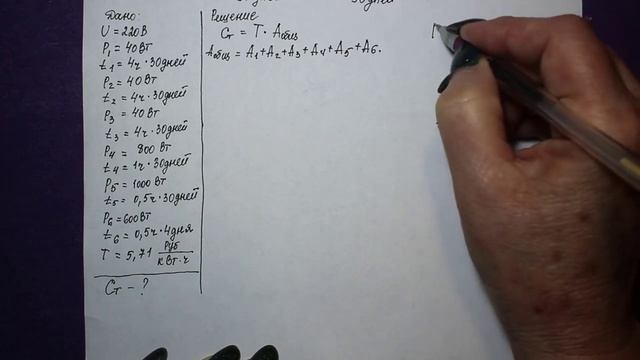 30дней
Дано:
U = 220В
P₁ = 40 Вт
t₁ = 4ч · 30дней
P₂ = 40 Вт
t₂ = 4ч · 30дней
P₃ = 40 Вт
t₃ = 4ч · 30дней
P₄ = 800 Вт
t₄ = 1ч · 30дней
P₅ = 1000 Вт
t₅ = 0,5ч · 30дней
P₆ = 600 Вт
t₆ = 0,5ч · 4дня
T = 5,71 руб/кВт·ч
Ст - ?
Решение
Ст = T · Aобщ
Aобщ = A₁ + A₂ + A₃ + A₄ + A₅ + A₆.